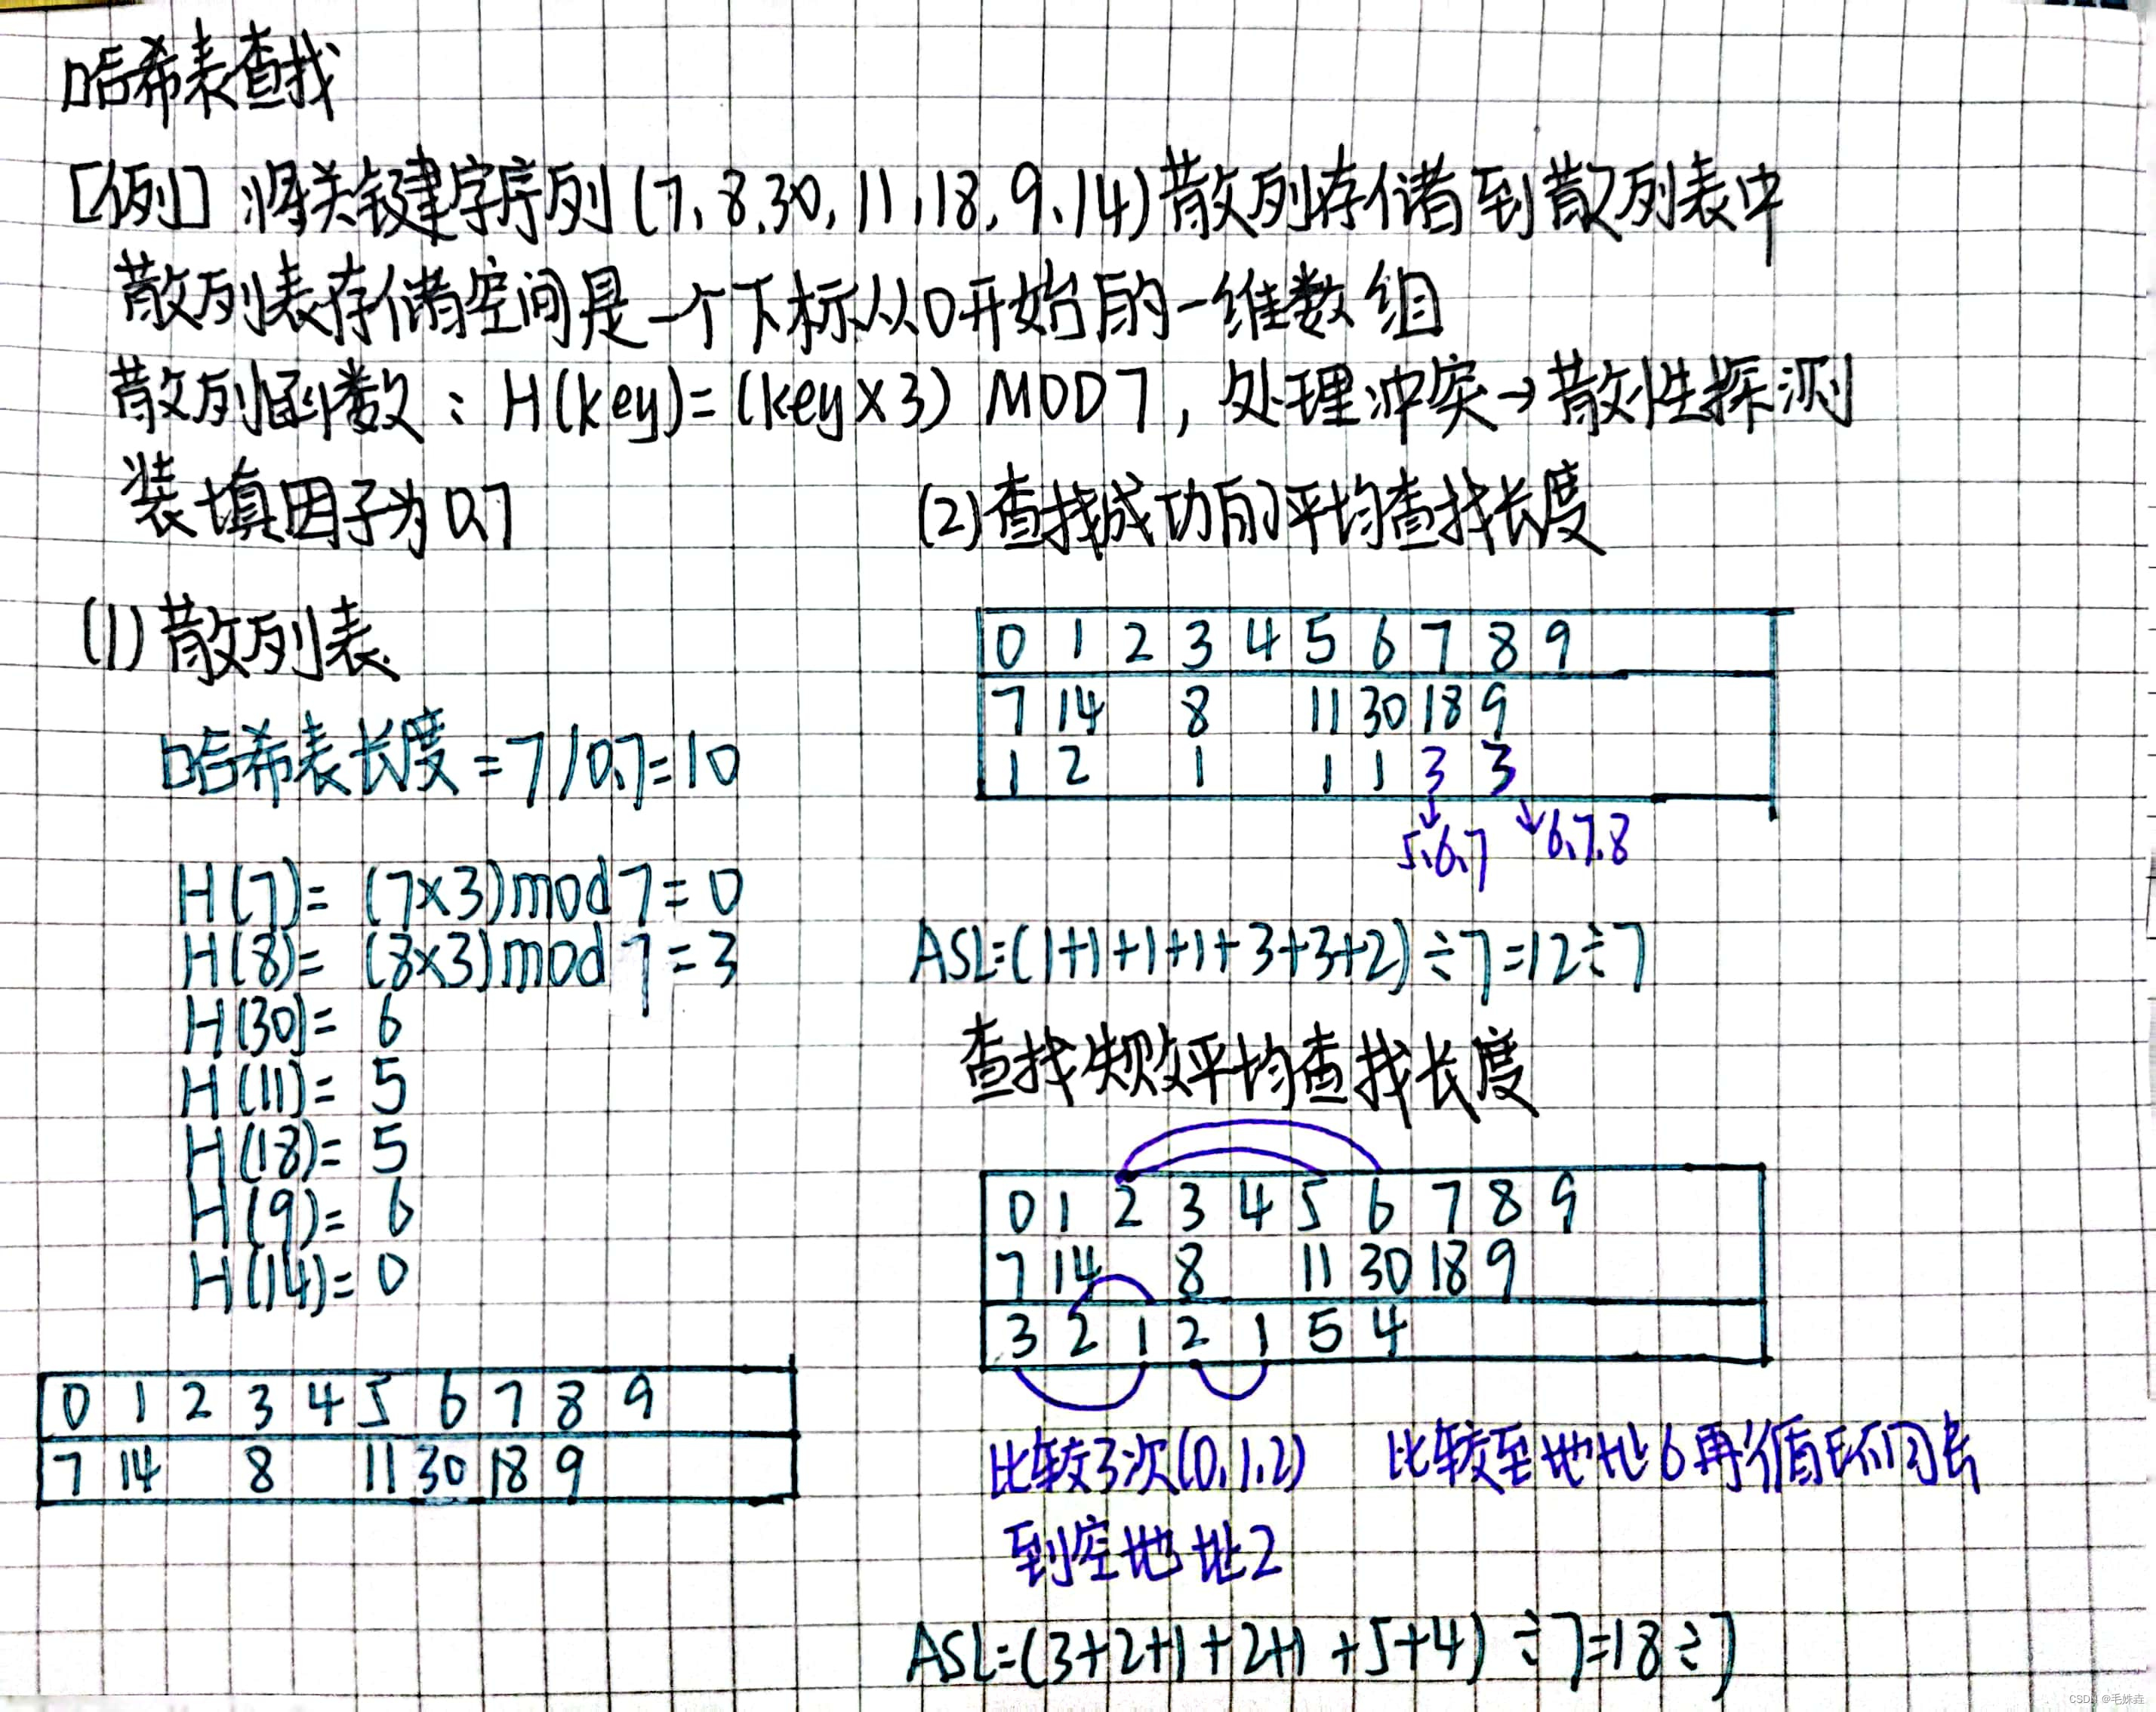 哈希表查找
[例] 将关键字序列(7、8、30、11、18、9、14)散列存储到散列表中
散列表存储空间是一个下标从0开始的一维数组
散列函数：H(key)=(key×3) MOD 7，处理冲突→散性探测
装填因子为0.7
(1)散列表
哈希表长度=7/0.7=10
H(7)= (7×3)mod 7=0
H(8)= (8×3)mod 7=3
H(30)= 6
H(11)= 5
H(18)= 5
H(9)= 6
H(14)= 0
0 1 2 3 4 5 6 7 8 9
7 14 8 11 30 18 9
(2)查找成功的平均查找长度
0 1 2 3 4 5 6 7 8 9
7 14 8 11 30 18 9
1 2 1 1 1 3 3
5.6.7 6.7.8
ASL=(1+1+1+1+3+3+2)÷7=12÷7
查找失败平均查找长度
0 1 2 3 4 5 6 7 8 9
7 14 8 11 30 18 9
3 2 1 2 1 5 4
比较3次(0.1.2) 比较至地址6再循环回去
到空地址2
ASL=(3+2+1+2+1+5+4)÷7=18÷7
CSDN @毛姝垚